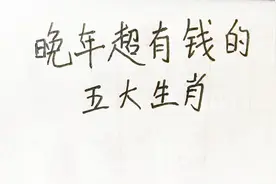 晚年超有钱的
五大生肖